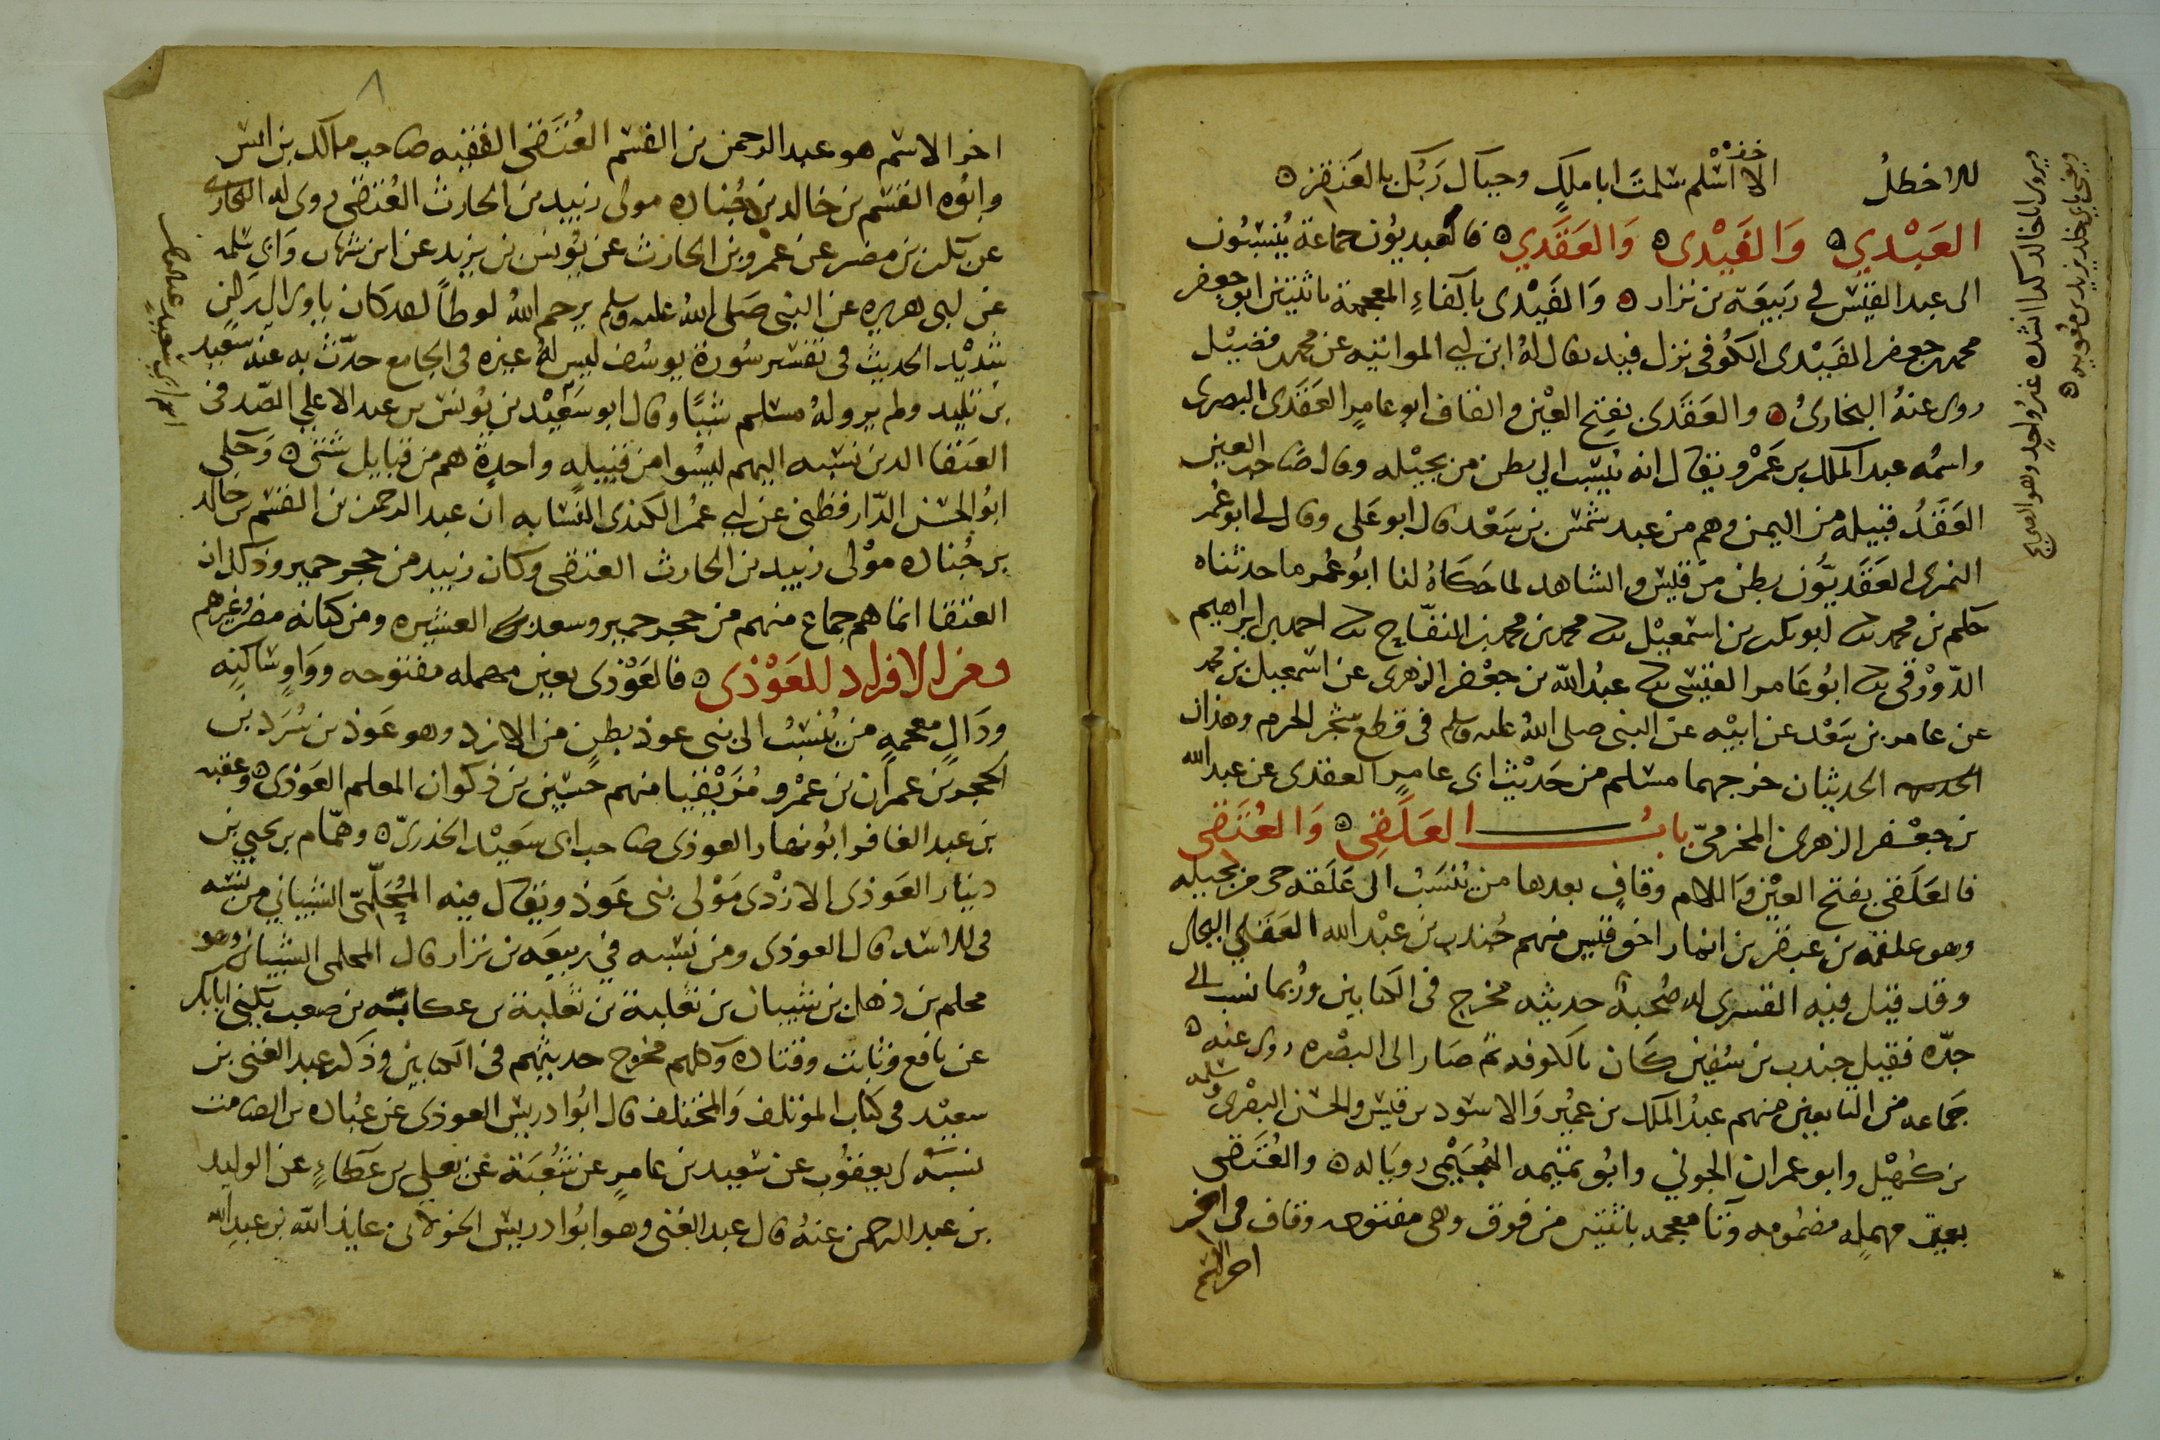 للاخطل الا اسْلم سلمتَ ابا ملكٍ وحيال رَبُّك بالعَنقز
العَبْدي وَالفَيْدى وَالعَقَدي فالعبديوُن جماعة يُنسَبُون
الى عبد القيْس في رَبيعَة بن نزار وَالفَيْدى بالفاءِ المعجمة باثنتين ابو جعفر
محمد بن جعفر الفَيْدى الكُوفى نزل فيد يقال لهُ ابن ابي المواتيه عن محمد فضيْل
روى عنهُ البخارىُ والعَقَدى بفتح العيْن والقاف ابو عامرٍ العَقَدى البصرى
واسمُه عبد الملك بن عَمْرو يقال انه يُنسَب الي بطن من بجيْله وقال صاحب العين
العَقَدُ قبيله من اليمن وهم من عبد شمْس بن سَعْد قال ابو عَلى وقال لي ابو عُمر
النمرى العَقَديُّون بطن من قيْس والشاهد لما حَكَاهُ لنا ابُو عُمر ما حدثناه
حكم بن محمد ثنا ابو بكر بن اسمعيْل ثنا محمد بن محمد بن النفّاح ثنا احمد بن ابراهيم
الدّوْرقى ثنا ابُو عَامر القيْسى ثنا عبدُ اللّه بن جعْفر الزهرى عن اسمعيل بن محمد
عن عامر بن سَعْد عن ابيْه عن النبى صلى اللهُ عليه وسلم فى قطع شجر الحرم وهذان
الحديثان خرجهما مسلم من حَديْث ابى عامرٍ العقدى عن عبد الله
بن جعْفر الزهرى المخرمىّ باب العَلَقِى وَالعُتَقى
فالعَلَقى بفتح العيْن وَاللام وقافٍ بعدها من يُنسَبُ الى عَلَقه حى من بجيله
وهو علقه بن عبقر بن انمار اخو قيس منهم جُندب بن عبْد الله العَلَقى البجلى
وقد قيل فيه القسرى له صُحبةٌ حديثه مخرج فى الكتابين ورُبما نسب الى
جدّه فقيل جندب بن سُفين كَان بالكوفه ثم صَار الى البصْره روى عنه
جَماعه من التابعين منهم عبدُ الملك بن عميْر وَالاسْود بن قيْس والحسن البصْرى وسلمه
بن كُهيْل وابو عمران الجونى وابُو تميْمه الهُجَيْمى رويَا له والعُتَقى
بعين مهملٍه مضمُومه وتَا معجمه باثنتين من فوق وهى مفتوحه وقاف فى اخر
اخر الاسم
ويروى ابا خالد كذا انشده غيرُ واحدٍ وهو الصحيح
ويعنى بابي خالد يزيد بن معويه
اخر الاسم هو عبد الرحمن بن القسم العُتَقى الفقيه صاحب مالك بن انس
وابُوه القسَم بن خالد بن جُناده مولى زبيد بن الحارث العُتقى روى له البخارى
عن بَكر بن مضر عن عمْرو بن الحارث عن يُونس بن يزيد عن ابن شهاب وَابي سلمه
عن ابى هريره عن النبى صَلى اللهُ عليه وسلم يرحم اللهُ لوطاً لقد كان ياوى الى ركن
شدیْد الحديث فى تفسير سُورة يوسُف ليس لهُ غيره فى الجامع حدّث به عنه سعيد
بن تليد ولم يرو لهُ مسلم شيًا وقال ابو سَعيْد بن يُونس بن عبد الاعلى الصّدفى
العتقا الذين نسَبه اليهم ليسُوا من قبيلهٍ واحدةٍ هم من قبايل شتى وَحَكى
ابُو الحسن الدّارقطنى عن ابي عمُر الكندى النسّابه ان عبد الرحمن بن القسم بن خالد
بن جُناده موْلى زبيد بن الحارث العتقى وكان زبيد من حجر حمير وذكر ان
العتقا انما هم جماع منهم من حجر حمير وسعد العشيره ومن كنانة مضر وغيرهم
ومن الافراد للعَوْذى فالعَوْذى بعين مهمله مفتوحه ووَاوٍ ساكنه
وذالٍ معجمهٍ من يُنسَبُ الى بنى عوذ بطن من الازد وهو عَوذ بن سُرد بن
الحجر بن عمران بن عمْرو مُزَيْقيا منهم حسَين بن ذكوان المعلم العَوذى وعقبه
بن عبد الغافر ابُو نهار العوذى صاحب ابى سَعيْد الخدرىّ وهمّام بن يحيى بن
دينار العَوذى الازْدى مَوْلى بنى عَوذ ويقال فيه المُحَلّمىّ الشيبانى من نسَبه
فى الاسد قال العوذى ومن نسَبه في ربيعَه بن نزار قال المحلمى الشيبانى وهو
محلم بن ذهل بن شيبان بن ثعلبة بن عكابَه بن صعب يكنى ابا بكر
عن نافع وثابت وقتاده وكلهم مخرج حديثهم فى الكتابين وذكر عبد الغنى بن
سعيْد فى كتاب المؤتلف وَالمختلف قال ابُو ادريس العوذى عن عبُاده بن الصّامت
نسَبَه لي يعقوب عن سَعيد بن عامرٍ عن شُعْبَة عن يعلى بن عَطاءٍ عن الوليد
بن عبد الرحمن عنهُ قال عبد الغنى وهو ابُو ادريس الخولانى عايذ اللّه بن عبد اللّه